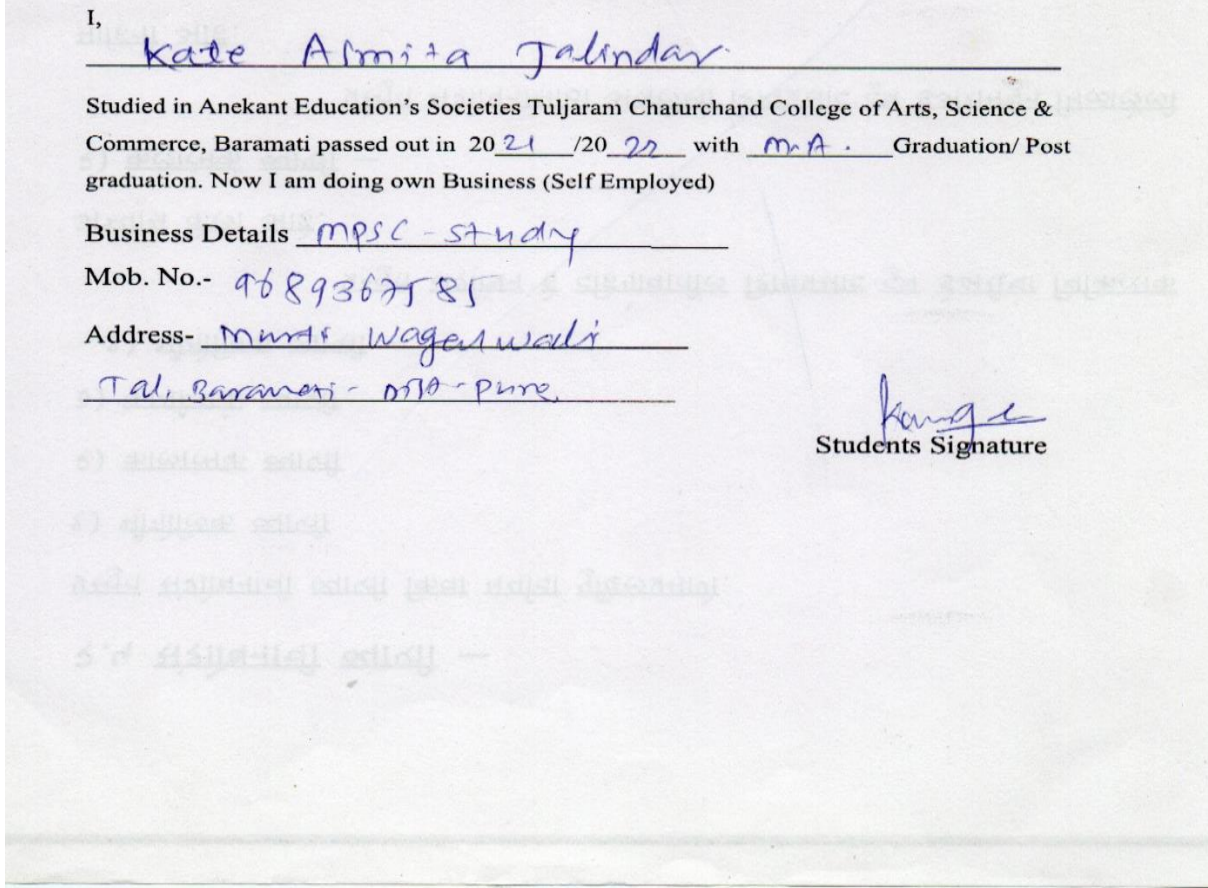 I,
Kate Asmita Jalindar
Studied in Anekant Education's Societies Tuljaram Chaturchand College of Arts, Science &
Commerce, Baramati passed out in 2021 /2022 with M.A. Graduation/ Post
graduation. Now I am doing own Business (Self Employed)
Business Details MPSC - Study
Mob. No.- 9689367585
Address- Murti Wagalwadi
Tal. Baramati - Dist - Pune
Students Signature